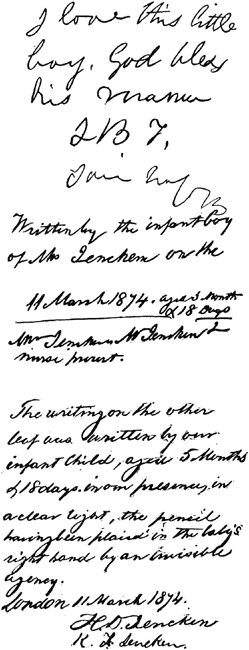 I love this little
boy. God bless
his mamma
J B T.
I am hap
Written by the infant boy
of Mrs Jencken on the
11 March 1874. aged 5 Months
& 18 Days
Mrs Jencken Mr Jencken &
nurse present.
The writing on the other
leaf was written by our
infant child, aged 5 Months
& 18 days. in our presence, in
a clear light, the pencil
having been placed in the baby's
right hand by an invisible
agency.
London 11 March 1874.
H. D. Jencken
K. F. Jencken.